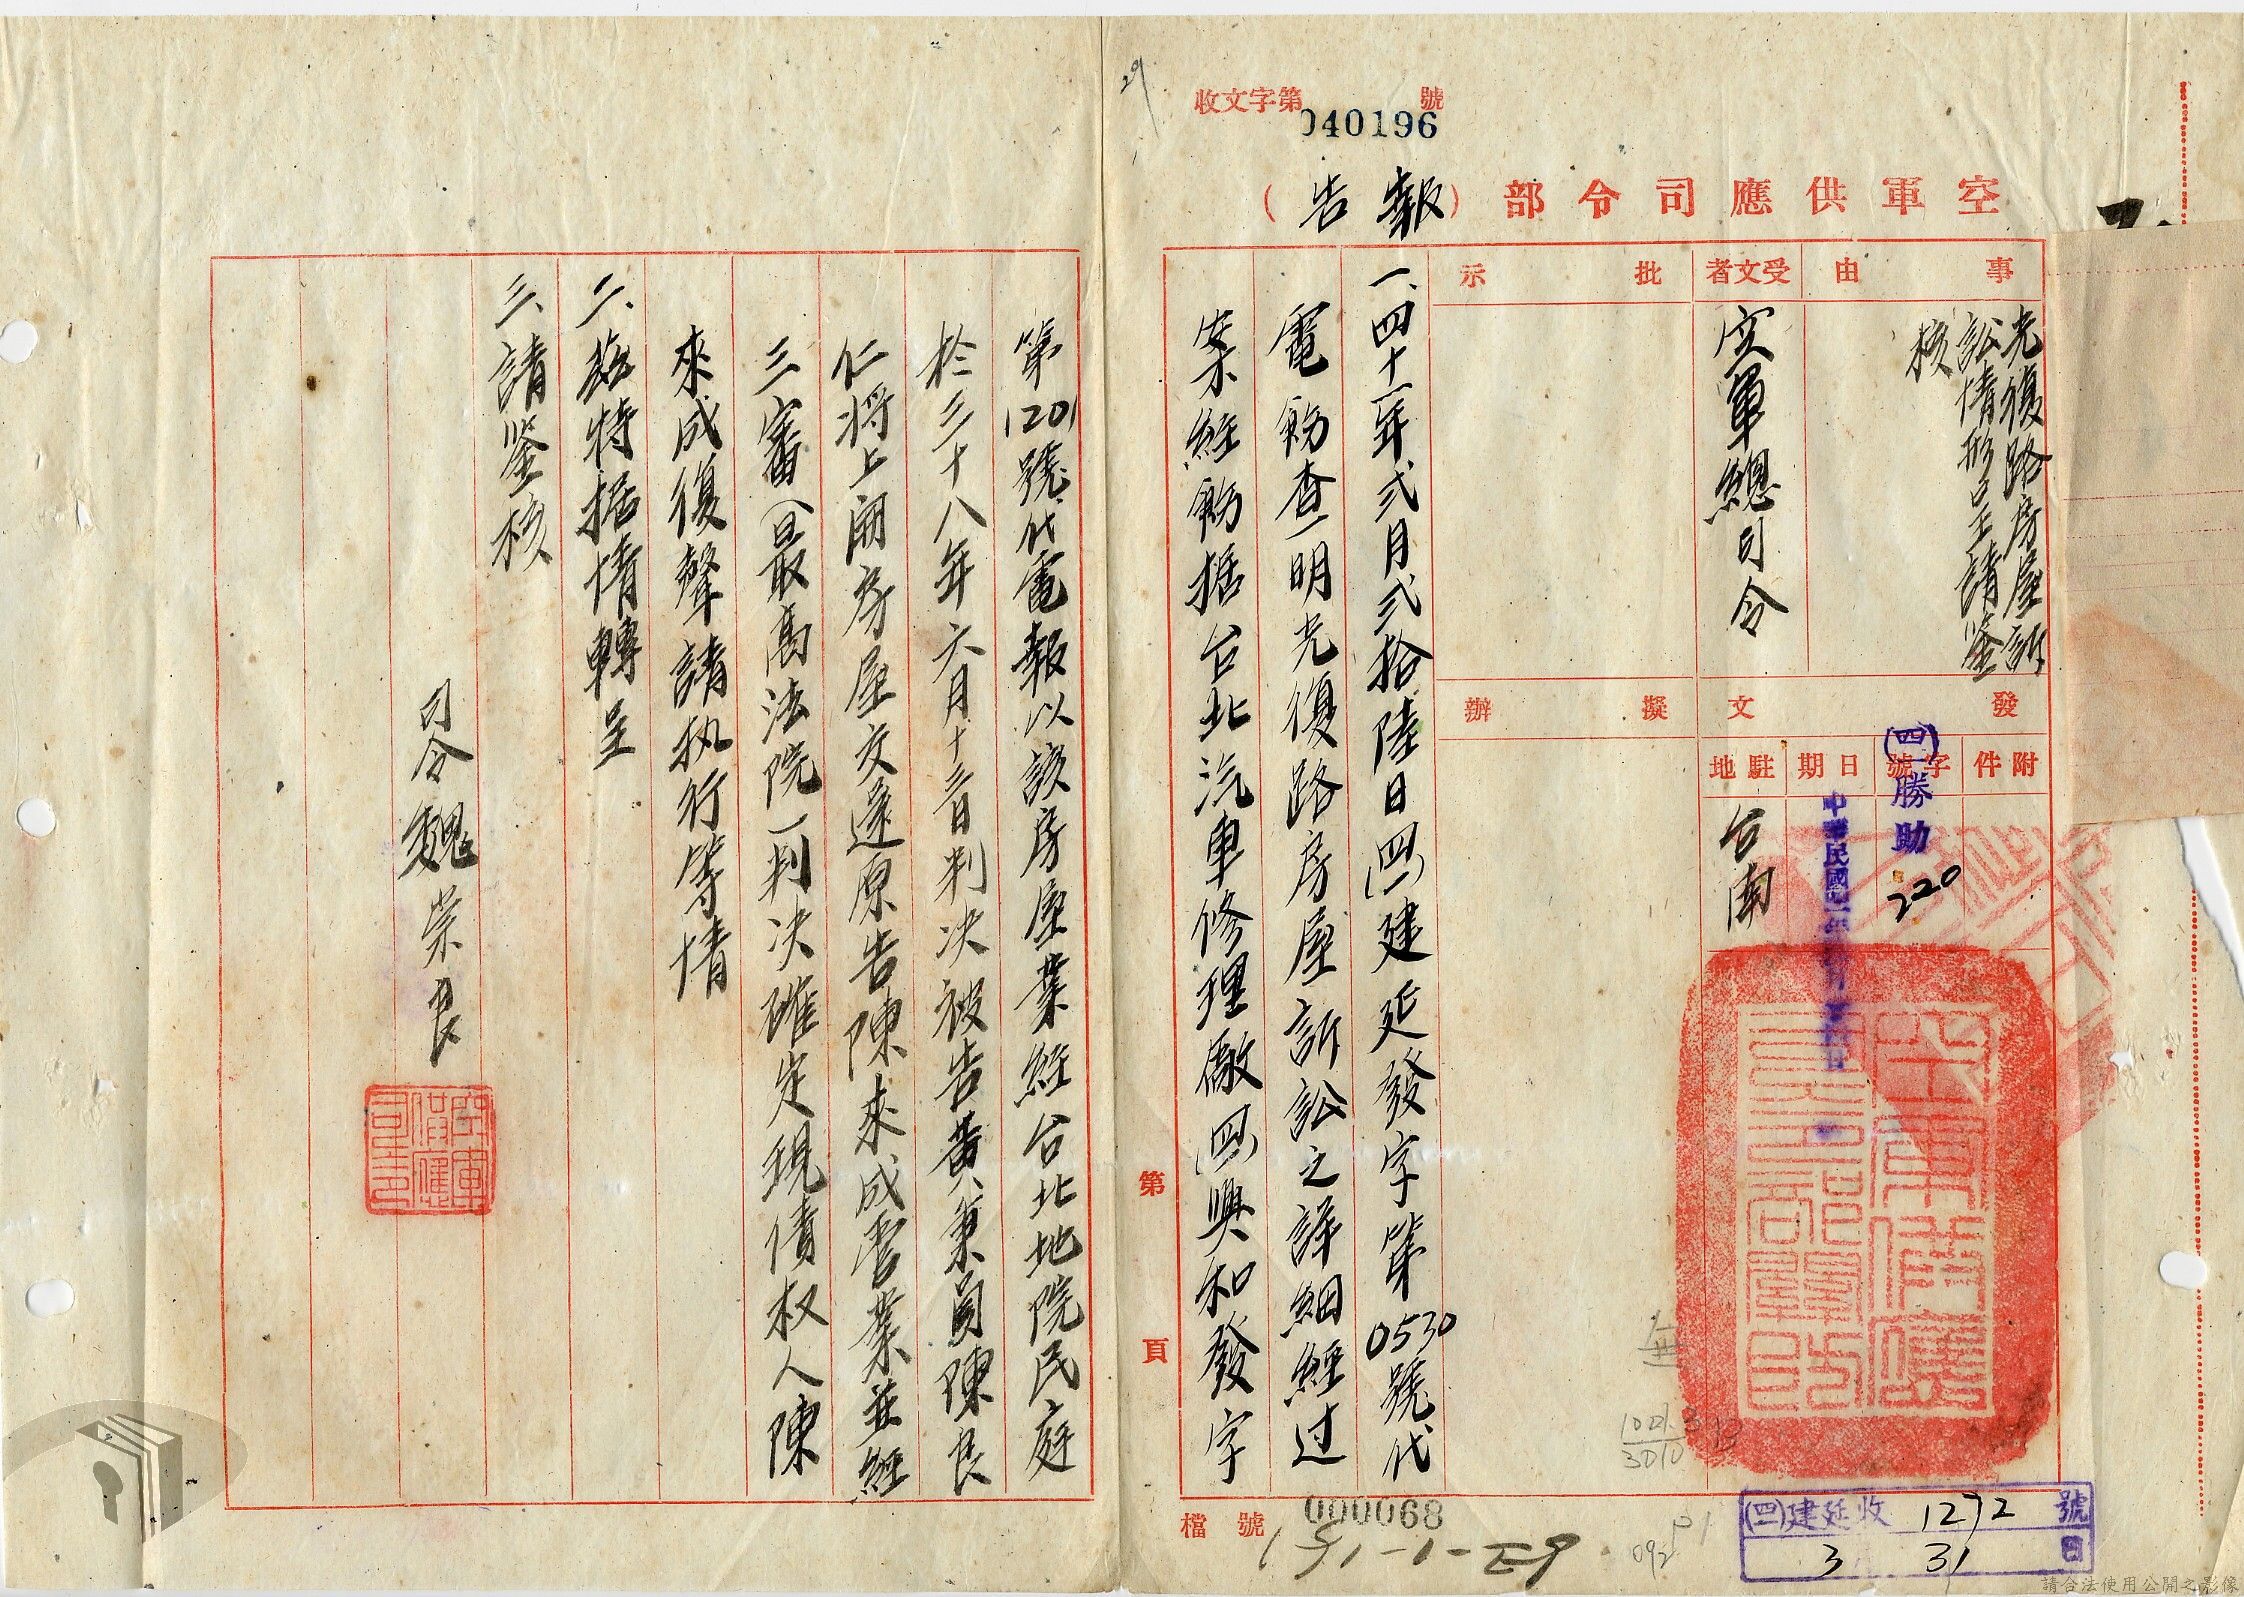 收文字第040196號
空軍供應司令部（報告）
事由
光復路房屋訴
訟情形呈請鑒
核
受文者
空軍總司令
批示
擬辦
發文
附件
字號
(四一)勝助
220
日期
中華民國
駐地
台南
一、四十一年弍月弍拾陸日(四一)建延發字第0530號代
電飭查明光復路房屋訴訟之詳細經过
案經飭据台北汽車修理廠(四一)興和發字
第　頁
第1201號代電報以該房屋業經台北地院民庭
於三十八年六月十三日判决被告黃秉員陳良
仁將上開房屋交還原告陳來成管業並經
三審(最高法院)判决確定現債权人陳
來成復聲請执行等情
二、茲特据情轉呈
三、請鑒核
司令魏崇良
空軍供應司令印
(四一)建延收 1272 號
3月31日
檔號
000068
請合法使用公開之影像